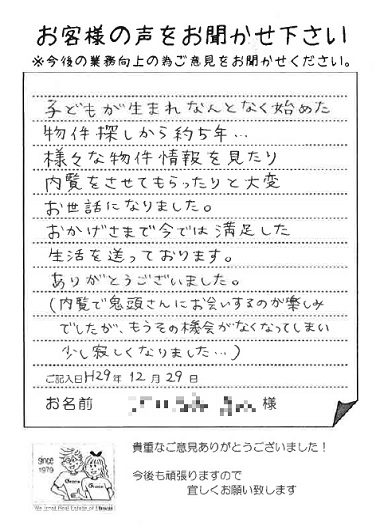 お客様の声をお聞かせ下さい
※今後の業務向上の為ご意見をお聞かせください。
子どもが生まれなんとなく始めた
物件探しから約5年…
様々な物件情報を見たり
内覧をさせてもらったりと大変
お世話になりました。
おかげさまで今では満足した
生活を送っております。
ありがとうございました。
(内覧で鬼頭さんにお会いするのが楽しみ
でしたが、もうその機会がなくなってしまい
少し寂しくなりました…)
ご記入日H29年 12月 29日
お名前 様
since
1979
We love Real Estate of
貴重なご意見ありがとうございました！
今後も頑張りますので
宜しくお願い致します